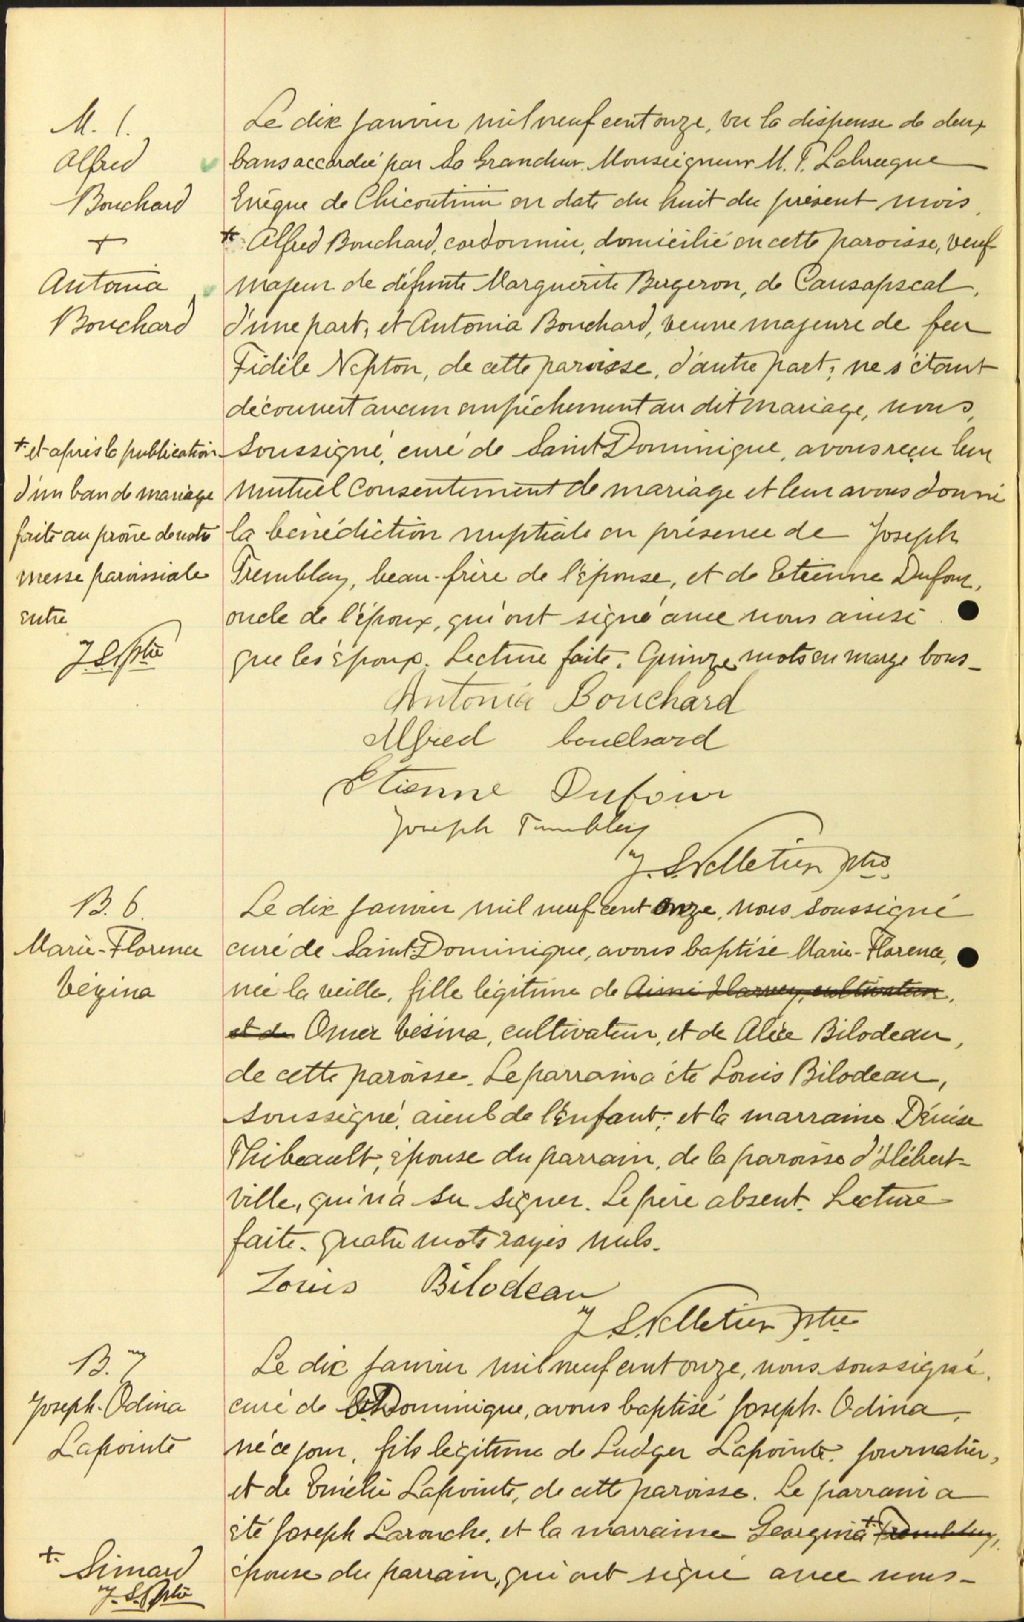 M. 1.
Alfred
Bouchard
+
Antonia
Bouchard
Le dix janvier mil neuf cent onze, vu la dispense de deux
bans accordée par Sa Grandeur Monseigneur M. T. Labrecque
Evêque de Chicoutimi en date du huit du présent mois,
* Alfred Bouchard, cordonnier, domicilié en cette paroisse, veuf
majeur de défunte Marguerite Bergeron, de Causapscal,
d'une part, et Antonia Bouchard, veuve majeure de feu
Fidèle Nepton, de cette paroisse, d'autre part; ne s'étant
découvert aucun empêchement au dit mariage, nous,
soussigné, curé de Saint-Dominique, avons reçu leur
mutuel consentement de mariage et leur avons donné
la bénédiction nuptiale en présence de Joseph
Tremblay, beau-frère de l'épouse, et de Etienne Dufour,
oncle de l'époux, qui ont signé avec nous ainsi
que les époux. Lecture faite. Quinze mots en marge bons_
* et après la publication
d'un ban de mariage
faite au prône de notre
messe paroissiale
entre
J S P ptre
Antonia Bouchard
Alfred bouchard
Etienne Dufour
Joseph Tremblay
J. S. Pelletier ptre
B. 6.
Marie-Florence
Vézina
Le dix janvier mil neuf cent onze, nous soussigné
curé de Saint-Dominique, avons baptisé Marie-Florence,
née la veille, fille légitime de Aimé Harvey, cultivateur,
et de Omer Vésina, cultivateur, et de Alice Bilodeau,
de cette paroisse. Le parrain a été Louis Bilodeau,
soussigné, aïeul de l'enfant, et la marraine Démise
Thibeault, épouse du parrain, de la paroisse d'Hébert-
ville, qui n'a su signer. Le père absent. Lecture
faite. quatre mots rayés nuls.
Louis Bilodeau
J. S. Pelletier ptre
B. 7
Joseph-Odina
Lapointe
Le dix janvier mil neuf cent onze, nous soussigné,
curé de St Dominique, avons baptisé Joseph-Odina,
né ce jour, fils légitime de Ludger Lapointe, journalier,
et de Emélie Lapointe, de cette paroisse. Le parrain a
été Joseph Larouche, et la marraine Georgina * Tremblay,
épouse du parrain, qui ont signé avec nous_
* Simard
J. S. P ptre